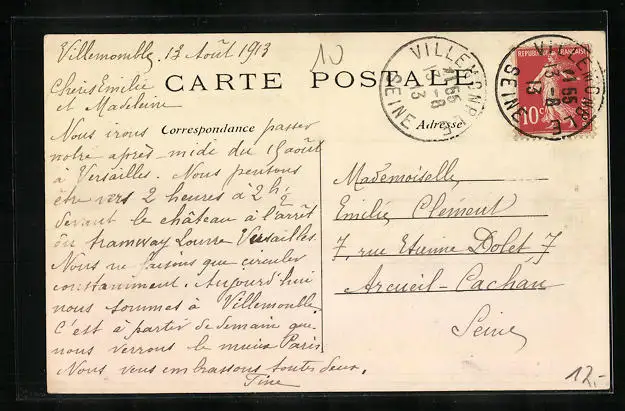 Villemomble, 13 Août 1913
10
CARTE POSTALE
Correspondance
Adresse
Chers Emilie
et Madeleine
Nous irons passer
notre après-midi du 15 août
à Versailles. Nous pensons
être vers 2 heures à 2h ½
devant le château à l'arrêt
du tramway Louvre Versailles.
Nous ne faisons que circuler
constamment. Aujourd'hui
nous sommes à Villemomble.
C'est à partir de demain que
nous verrons le mieux Paris
Nous vous embrassons toutes deux.
Tine
VILLEMOMBLE
11 55
13 - 8
13
SEINE
REPUBLIQUE FRANÇAISE
10c
VILLEMOMBLE
11 55
13 - 8
13
SEINE
Mademoiselle,
Emilie Clément
7, rue Etienne Dolet, 7
Arcueil-Cachan
Seine
12,-